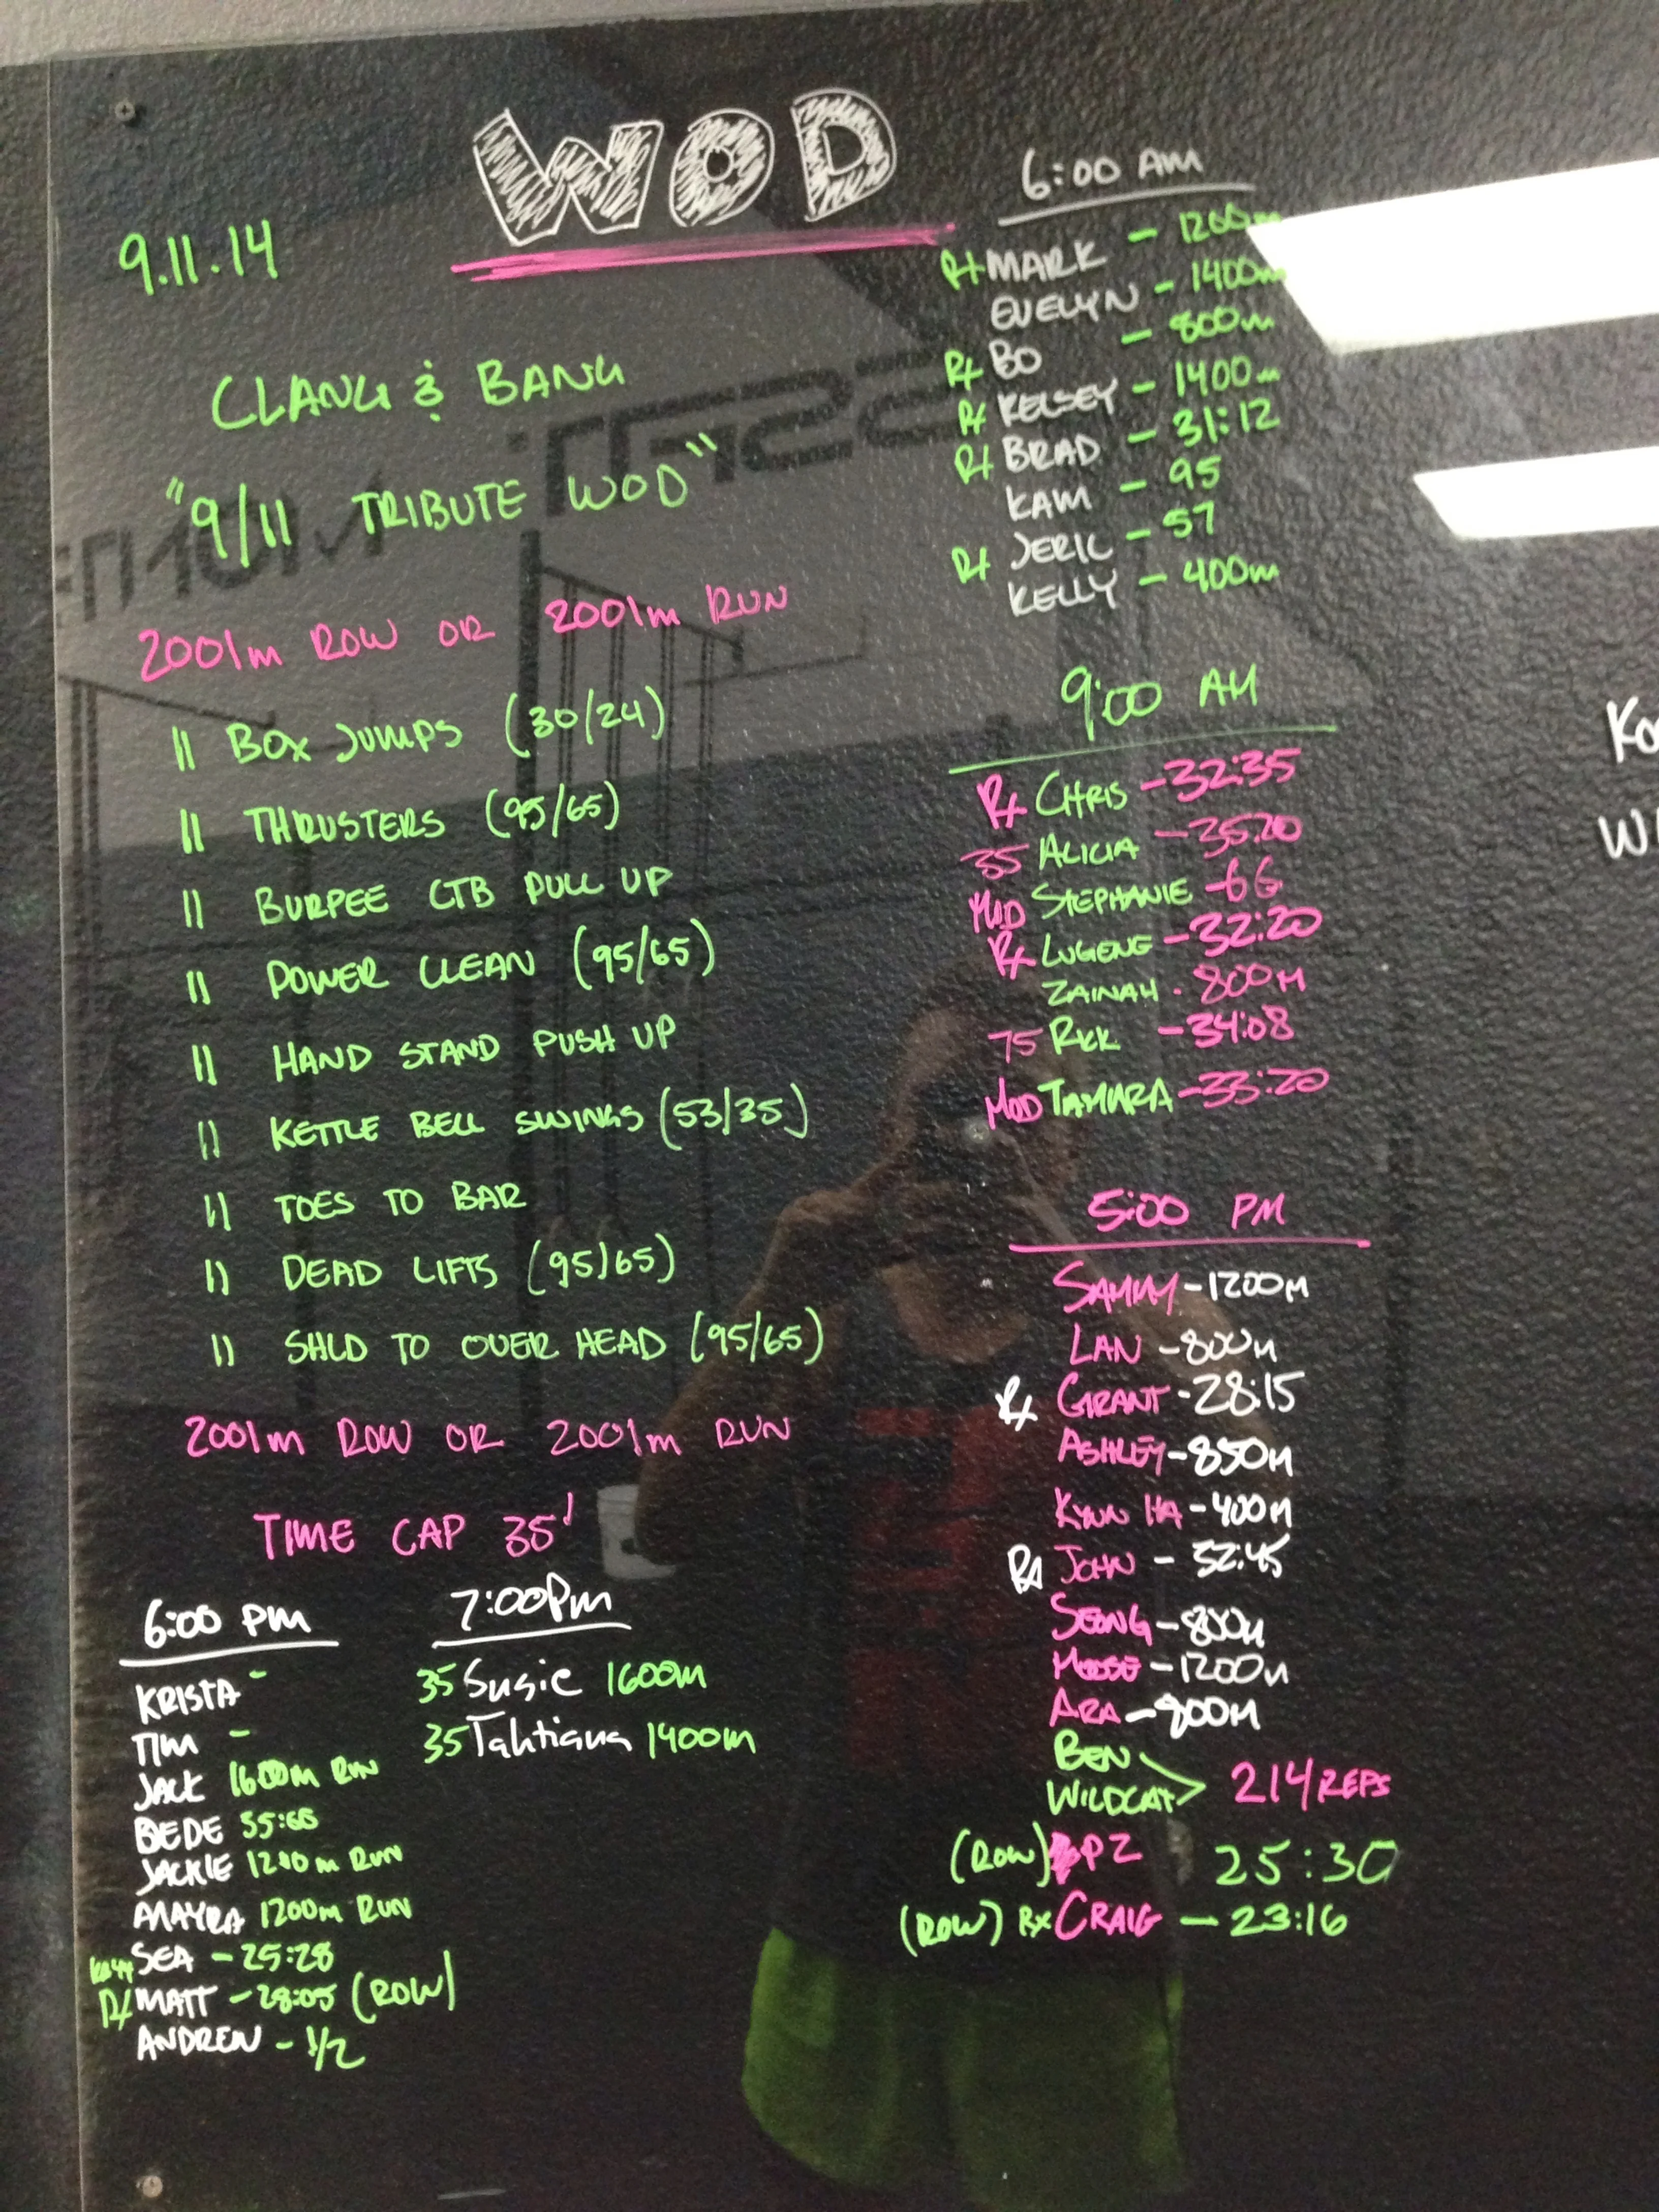 WOD
9.11.14
CLANG & BANG
"9/11 TRIBUTE WOD"
2001m ROW OR 2001m RUN
11 BOX JUMPS (30/24)
11 THRUSTERS (95/65)
11 BURPEE CTB PULL UP
11 POWER CLEAN (95/65)
11 HAND STAND PUSH UP
11 KETTLE BELL SWINGS (53/35)
11 TOES TO BAR
11 DEAD LIFTS (95/65)
11 SHLD TO OVER HEAD (95/65)
2001m ROW OR 2001m RUN
TIME CAP 35'
6:00 PM
KRISTA -
TIM -
JACK 1600m RUN
BEDE
JACKIE 1200m RUN
MAYRA 1200m RUN
SEA - 25:28
Rx MATT - 28:05 (ROW)
ANDREW - 1/2
7:00 Pm
35 Susie 1600m
35 Tahtiana 1400m
6:00 AM
Rx MARK - 1200m
EVELYN - 1400m
Rx BO - 800m
Rx KELSEY - 1400m
Rx BRAD - 31:12
KAM - 95
Rx JERIC - 57
KELLY - 400m
9:00 AM
Rx CHRIS - 32:35
35 ALICIA - 35:20
MOD STEPHANIE - 66
Rx LUGENE - 32:20
ZAINAH - 800M
75 RICK - 34:08
MOD TAMARA - 33:20
5:00 PM
SAMMY - 1200M
LAN - 800M
Rx GRANT - 28:15
ASHLEY - 850M
KYNN HA - 400M
Rx JOHN - 32:45
SEONG - 800M
MOOSE - 1200M
ARA - 800M
BEN
WILDCAT > 214 REPS
(ROW) PZ 25:30
(ROW) Rx CRAIG - 23:16